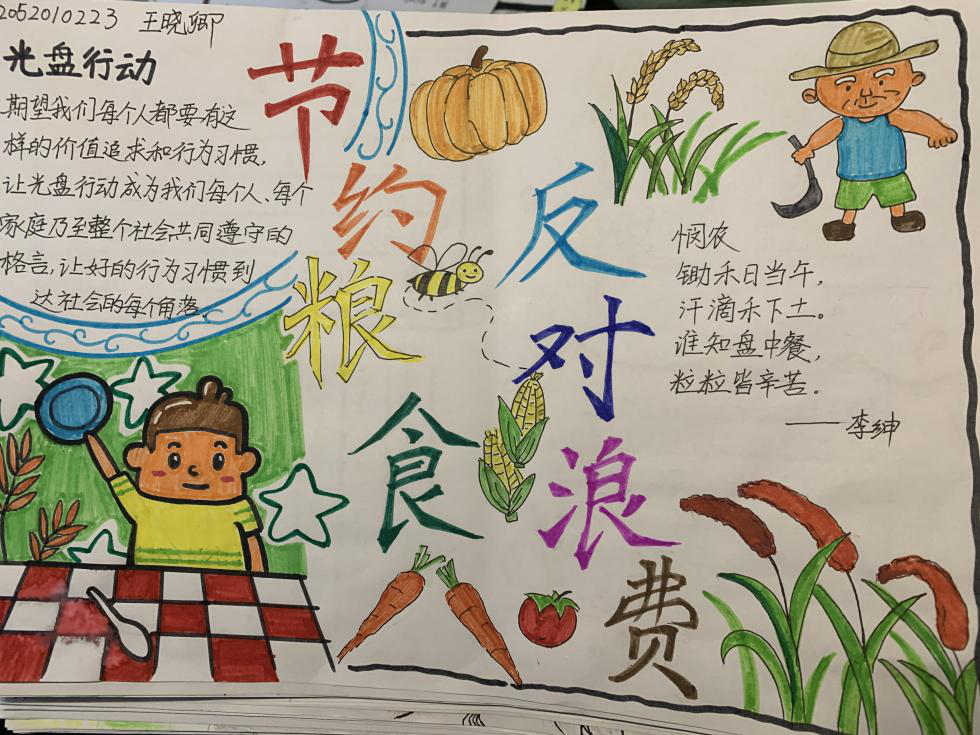 2052010223 王晓卿
光盘行动
期望我们每个人都要有这
样的价值追求和行为习惯,
让光盘行动成为我们每个人、每个
家庭乃至整个社会共同遵守的
格言,让好的行为习惯到
达社会的每个角落。
节约粮食
反对浪费
悯农
锄禾日当午,
汗滴禾下土。
谁知盘中餐,
粒粒皆辛苦。
——李绅